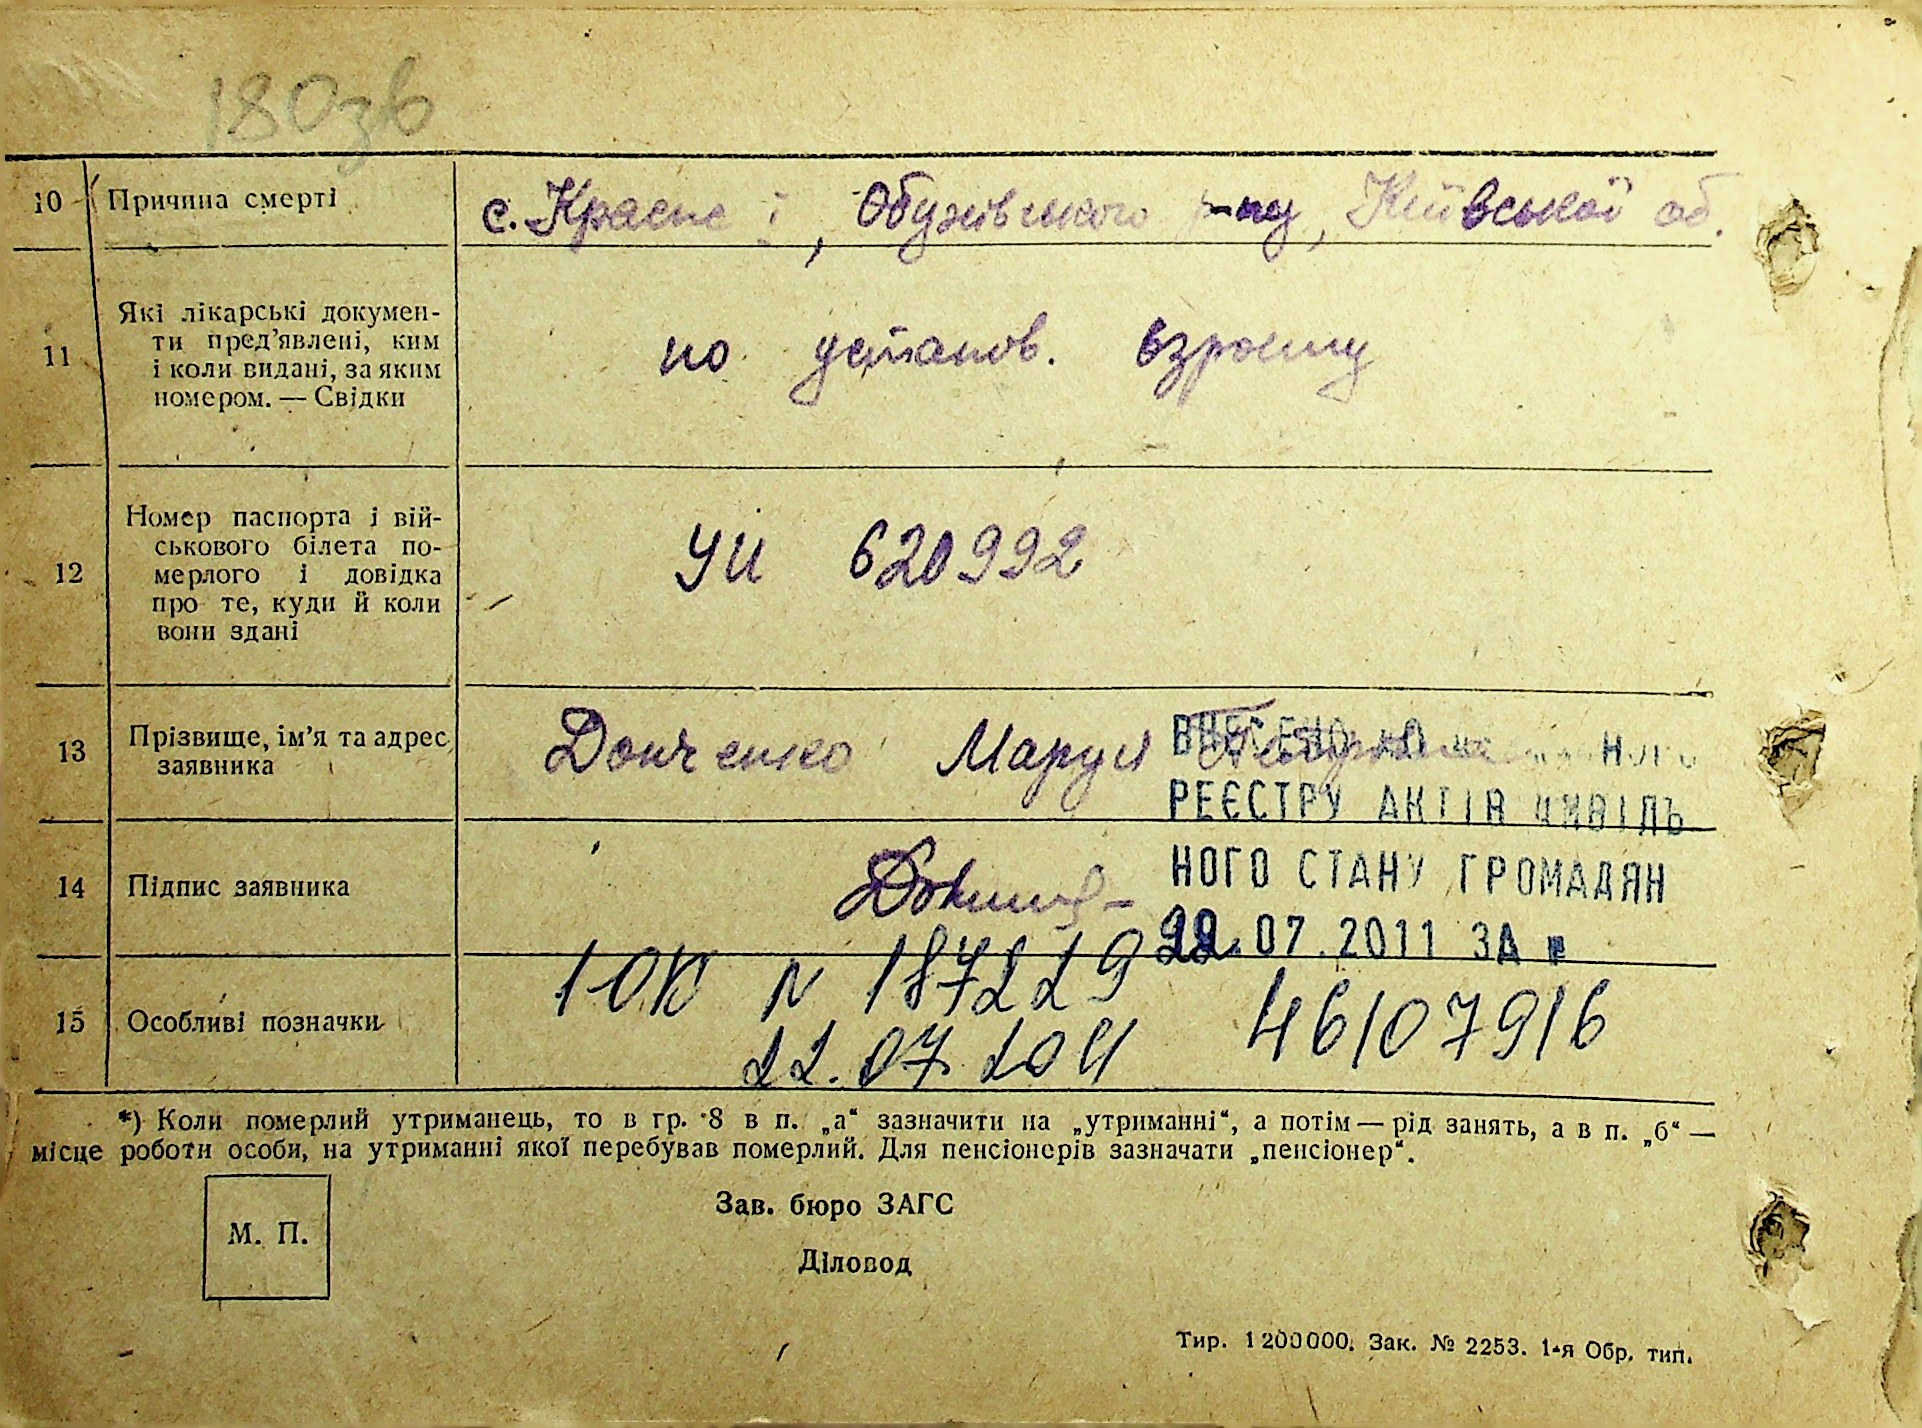 180зв
10 Причина смерті с. Красне І, Обухівського р-ну, Київської об.
11 Які лікарські докумен-
ти пред’явлені, ким
і коли видані, за яким
номером. — Свідки
по установ. взросту
12 Номер паспорта і вій-
ськового білета по-
мерлого і довідка
про те, куди й коли
вони здані
УЦ 620992
13 Прізвище, ім’я та адрес
заявника
Донченко Маруся
ВНЕСЕНО ДО
РЕЄСТРУ АКТІВ ЦИВІЛЬ
14 Підпис заявника
НОГО СТАНУ ГРОМАДЯН
22.07.2011 ЗА №
15 Особливі позначки
N 187229 46107916
22.07.2011
*) Коли померлий утриманець, то в гр. 8 в п. „а“ зазначити на „утриманні“, а потім — рід занять, а в п. „б“ —
місце роботи особи, на утриманні якої перебував померлий. Для пенсіонерів зазначати „пенсіонер“.
М. П.
Зав. бюро ЗАГС
Діловод
Тир. 1200000. Зак. № 2253. 1-я Обр. тип.